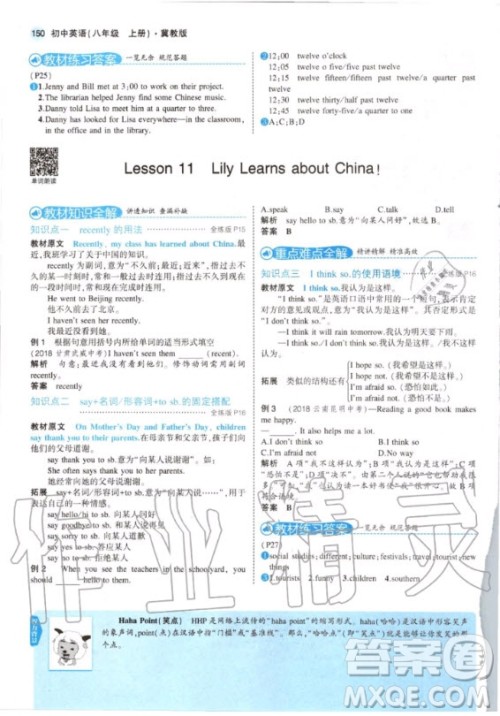 150 初中英语(八年级 上册)·冀教版
教材练习答案 一览无余 规范答题
(P25)
1.Jenny and Bill met at 3:00 to work on their project.
2.The librarian helped Jenny find some Chinese music.
3.Danny told Lisa to meet him at a quarter to four.
4.Danny has looked for Lisa everywhere—in the classroom,
in the offices, in the washrooms, and outside.
12:00 twelve o'clock
12:05 twelve five/five past twelve
12:15 twelve fifteen/fifteen past twelve/a quarter past
twelve
12:30 twelve thirty/half past twelve
12:45 twelve forty-five/a quarter to one
A;C;B;D
单词朗读
Lesson 11 Lily Learns about China!
教材知识全解 讲透知识 查漏补缺
知识点一 recently 的用法 全练版 P15
教材原文 Recently, my class has learned about China.最
近,我班学习了关于中国的知识。
recently 为副词,意为“不久前;最近”,指过去不久
的一段时间,常与现在完成时连用,也可用于过去时
的一般时态。
He went to Beijing recently.
他不久前去了北京。
例 1 根据句意用括号内所给单词的适当形式填空
(2018 甘肃武威中考) I haven't seen them (recent).
解析 句意:我最近没有看到他们。
答案 recently
知识点二 say+名词/形容词+to sb.的固定搭配
全练版 P16
教材原文 On Mother's Day and Father's Day, children
say thank you to their parents.在母亲节和父亲节,孩子们向他
们的父母道谢。
say thank you to sb.意为“向某人说谢谢”。
She often says thank you to her parents.
她经常向她的父母说谢谢。
拓展 say+名词/形容词+to sb.意为“向某人……”,表
达对某人的一种情感。
say hello/hi to sb.向某人问好
say goodbye to sb.向某人告别
say yes to sb.答应某人
say sorry to sb.向某人道歉
例 2 When you see the teachers in the schoolyard, you
should hello to them.
A.speak B.say C.talk D.tell
解析 say hello to sb.意为“向某人问好”,故选 B。
答案 B
重点难点全解 精讲精解 精准高效
知识点三 I think so.的使用语境 全练版 P16
教材原文 I think so.我认为是这样。
“I think so.”是英语口语中常用的一个句型,表示肯定
对方的意见或观点,意为“我认为是这样”。其否定形式
为“I don't think so.”。
—I think it will rain tomorrow.我认为明天要下雨。
—I think so.我也认为会下雨。
拓展 类似的结构还有
I hope so.(我希望是这样)
I hope not.(我希望不是这样)
I'm afraid so.(恐怕是这样)
I'm afraid not.(恐怕不是)
例 3 (2018 云南昆明中考)—Reading a good book makes
me happy.
— . It also helps me a lot.
A.I don't think so B.I think so
C.Thank you D.Sorry
答案 B
教材练习答案 一览无余 规范答题
(P27)
social studies; different; culture; festivals; travel; tourist; new
things
1.tourists 2.funny 3.cities 4.southern
Haha Point(笑点) HHP是网络上流传的“haha point”的缩写形式。haha(哈哈)是汉语中形容笑
声的象声词,point(点)在汉语中指“门槛”或“基准线”。那么,“haha point(笑点)”就是指哈哈大笑的那
个点。
作业精灵
答案圈
MXQE.COM